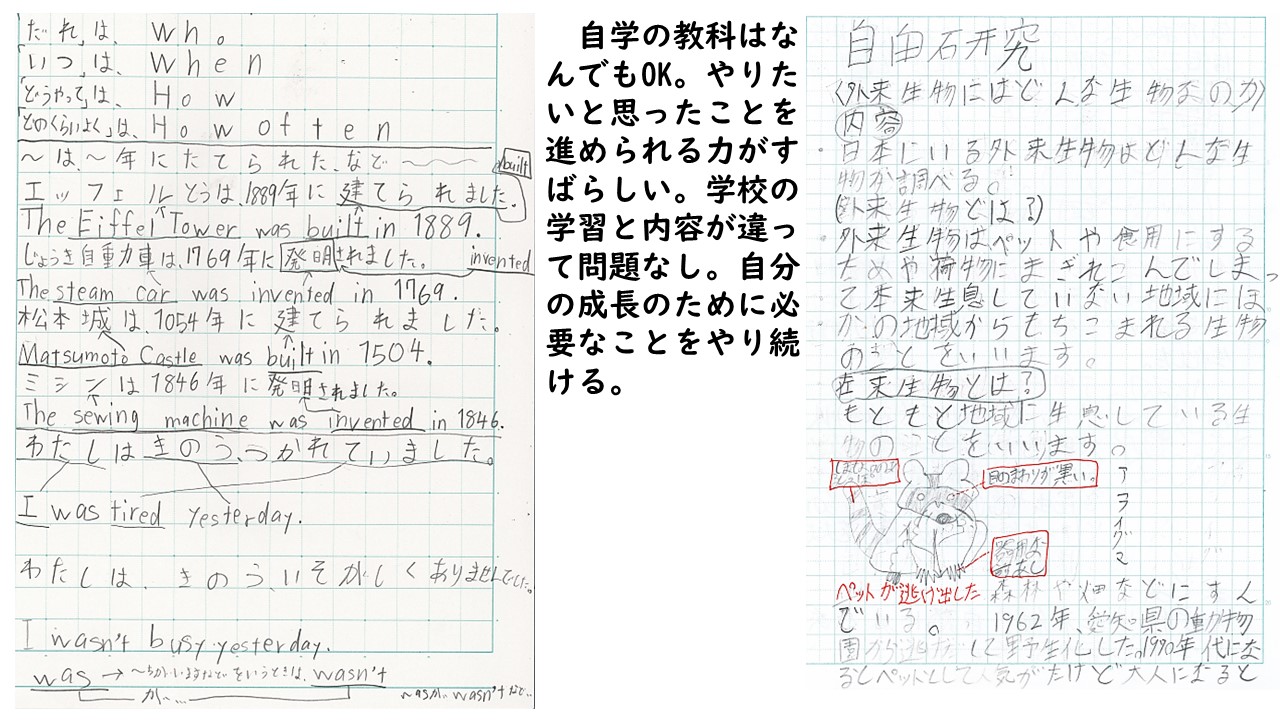 「だれ」は、 Who
「いつ」は、 When
「どうやって」は、 How
「どのくらいよく」は、 How often
～は、～年にたてられた、など
built
エッフェルとうは、1889年に建てられました。
The Eiffel Tower was built in 1889.
じょうき自動車は、1769年に発明されました。 invented
The steam car was invented in 1769.
松本城は、1054年に建てられました。
Matsumoto Castle was built in 1504.
ミシンは1846年に発明されました。
The sewing machine was invented in 1846.
わたしはきのう、つかれていました。
I was tired yesterday.
わたしは、きのう、いそがしくありませんでした。
I wasn't busy yesterday.
was → wasn't
が…
自学の教科はな
んでもOK。やりた
いと思ったことを
進められる力がす
ばらしい。学校の
学習と内容が違っ
て問題なし。自分
の成長のために必
要なことをやり続
ける。
自由研究
〈外来生物にはどんな生物なのか〉
内容
・日本にいる外来生物はどんな生
物か調べる。
(外来生物とは?)
・外来生物はペットや食用にする
ためや荷物にまぎれこんでしまっ
て本来生息していない地域にほ
かの地域からもちこまれる生物
のことをいいます。
在来生物とは?
もともと地域に生息している生
物のことをいいます。
目のまわりが黒い。
アライグマ
器用な
前あし
ペットが逃げ出した 森林や畑などにすん
でいる。 1962年、愛知県の動物
園から逃げだして野生化した。1970年代にな
るとペットとして人気がたけど大人になると